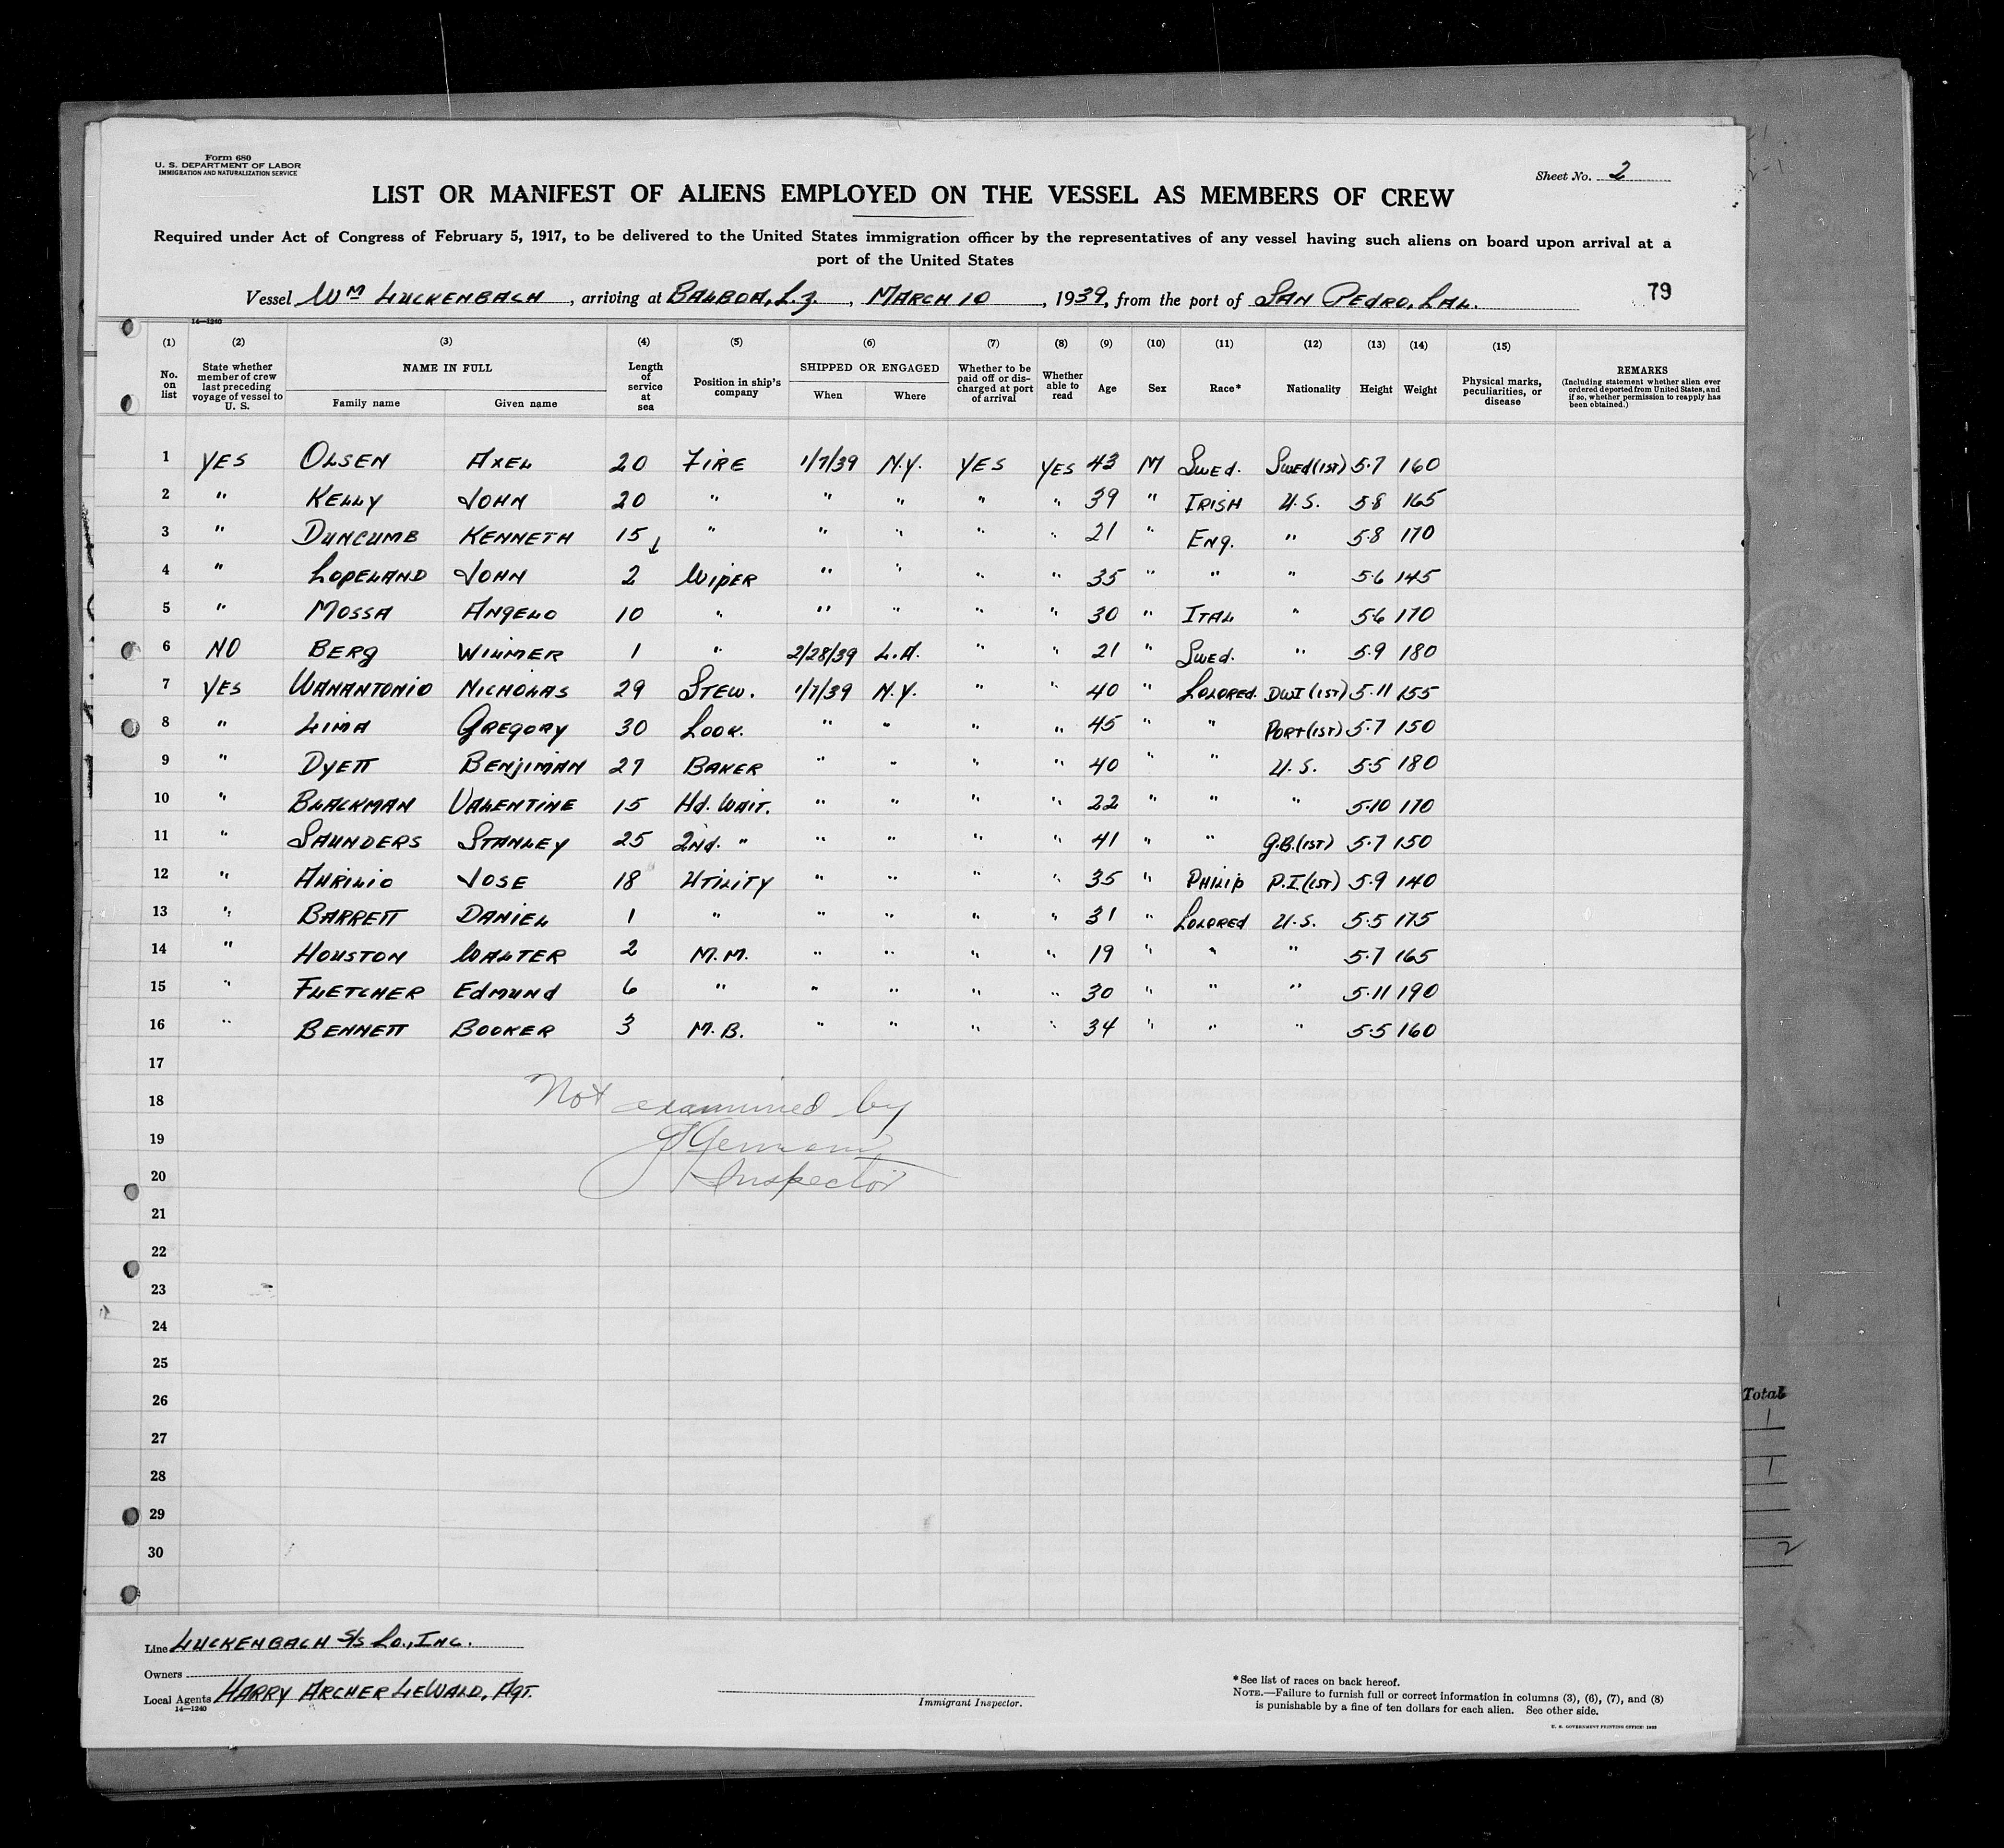 Form 680
U. S. DEPARTMENT OF LABOR
IMMIGRATION AND NATURALIZATION SERVICE
Sheet No. 2
LIST OR MANIFEST OF ALIENS EMPLOYED ON THE VESSEL AS MEMBERS OF CREW
Required under Act of Congress of February 5, 1917, to be delivered to the United States immigration officer by the representatives of any vessel having such aliens on board upon arrival at a
port of the United States
Vessel Wm LUCKENBACH, arriving at BALBOA, C.Z., MARCH 10, 1939, from the port of SAN PEDRO, CAL. 79
14—1240
(1) (2) (3) (4) (5) (6) (7) (8) (9) (10) (11) (12) (13) (14) (15)
No. on list State whether member of crew last preceding voyage of vessel to U. S. NAME IN FULL Family name Given name Length of service at sea Position in ship's company SHIPPED OR ENGAGED When Where Whether to be paid off or discharged at port of arrival Whether able to read Age Sex Race* Nationality Height Weight Physical marks, peculiarities, or disease REMARKS (Including statement whether alien ever ordered deported from United States, and if so, whether permission to reapply has been obtained.)
1 YES OLSEN AXEL 20 FIRE 1/7/39 N.Y. YES YES 43 M SWED. SWED(1ST) 5·7 160
2 " KELLY JOHN 20 " " " " " 39 " IRISH U.S. 5·8 165
3 " DUNCUMB KENNETH 15 " " " " " 21 " ENG. " 5·8 170
4 " COPELAND JOHN 2 WIPER " " " " 35 " " " 5·6 145
5 " MOSSA ANGELO 10 " " " " " 30 " ITAL " 5·6 170
6 NO BERG WILMER 1 " 2/28/39 L.A. " " 21 " SWED. " 5·9 180
7 YES WANANTONIO NICHOLAS 29 STEW. 1/7/39 N.Y. " " 40 " COLORED. DWI (1ST) 5·11 155
8 " LIMA GREGORY 30 COOK. " " " " 45 " " PORT(1ST) 5·7 150
9 " DYETT BENJIMAN 27 BAKER " " " " 40 " " U.S. 5·5 180
10 " BLACKMAN VALENTINE 15 HD. WAIT. " " " " 22 " " " 5·10 170
11 " SAUNDERS STANLEY 25 2ND. " " " " " 41 " " G.B.(1ST) 5·7 150
12 " AURILIO JOSE 18 UTILITY " " " " 35 " PHILIP P.I(1ST) 5·9 140
13 " BARRETT DANIEL 1 " " " " " 31 " COLORED U.S. 5·5 175
14 " HOUSTON WALTER 2 M.M. " " " " 19 " " " 5·7 165
15 " FLETCHER EDMUND 6 " " " " " 30 " " " 5·11 190
16 " BENNETT BOOKER 3 M.B. " " " " 34 " " " 5·5 160
17
18 Not examined by
19
20 Inspector
21
22
23
24
25
26
27
28
29
30
Total
1
1
2
Line LUCKENBACH S/S CO., INC.
Owners
Local Agents HARRY ARCHER LEWALD, AGT.
14—1240
Immigrant Inspector.
*See list of races on back hereof.
NOTE.—Failure to furnish full or correct information in columns (3), (6), (7), and (8)
is punishable by a fine of ten dollars for each alien. See other side.